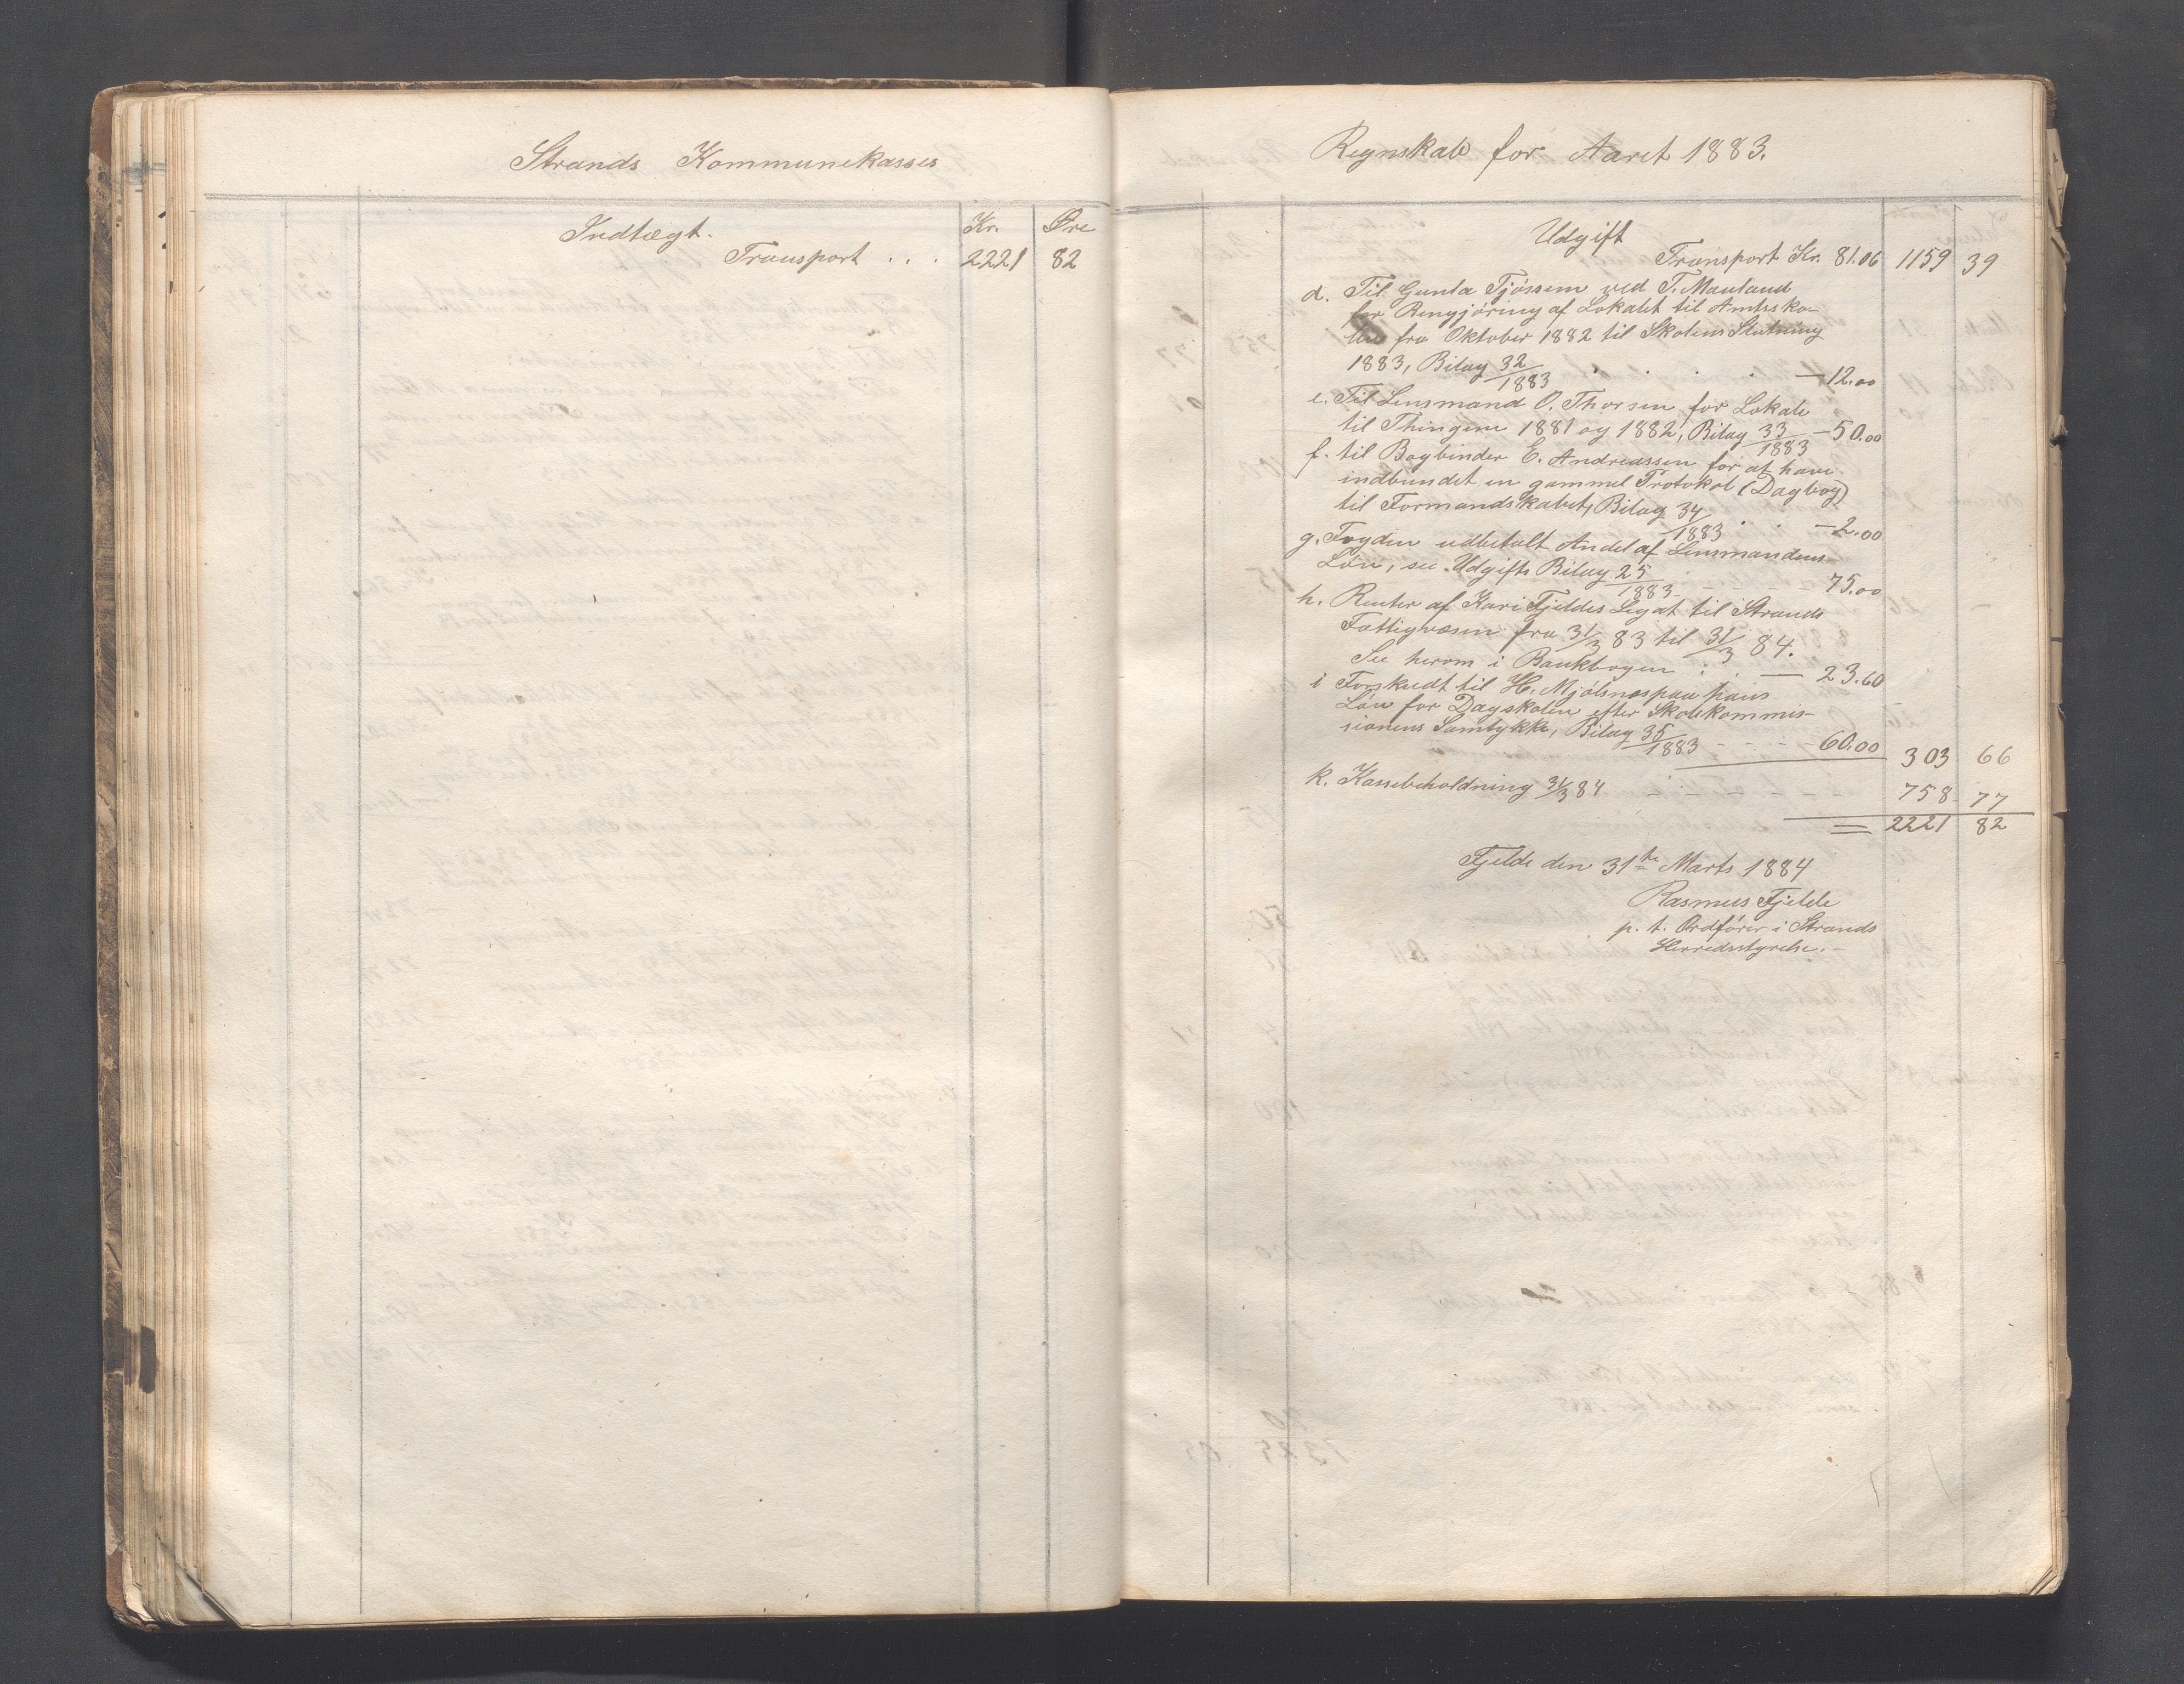 Strands Kommunekasses
Indtægt.
Kr. Øre
Transport . . . 2221 82
Regnskab for Aaret 1883.
Udgift
Transport Kr. 81.06 1159 39
d. Til Gunla Tjøssem ved T. Mauland
for Rengjøring af Lokalet til Amtssko-
len fra Oktober 1882 til Skolens Slutning
1883, Bilag 32/1883 . . . . — 12.00
e. Til Lensmand O. Thorsen for Lokale
til Thingene 1881 og 1882, Bilag 33/1883 — 50.00
f. til Bogbinder E. Andreassen for at have
indbundet en gammel Protokol (Dagbog)
til Formandskabet, Bilag 34/1883 . . — 2.00
g. Fogden udbetalt Andel af Lensmandens
Løn, see Udgifts Bilag 25/1883 - - - 75.00
h. Renter af Kari Fjeldes Legat til Strands
Fattigvæsen fra 31/3 83 til 31/3 84.
See herom i Bankbogen . . — 23.60
i Forskudt til H. Mjølsnes paa hans
Løn for Dagskolen efter Skolekommis-
sionens Samtykke, Bilag 35/1883 - - - - 60.00 303 66
k. Kassebeholdning 31/3 84 - - - - - - 758 77
= 2221 82
Fjelde den 31te Marts 1884
Rasmus Fjelde
p. t. Ordfører i Strands
Herredsstyrelse. -